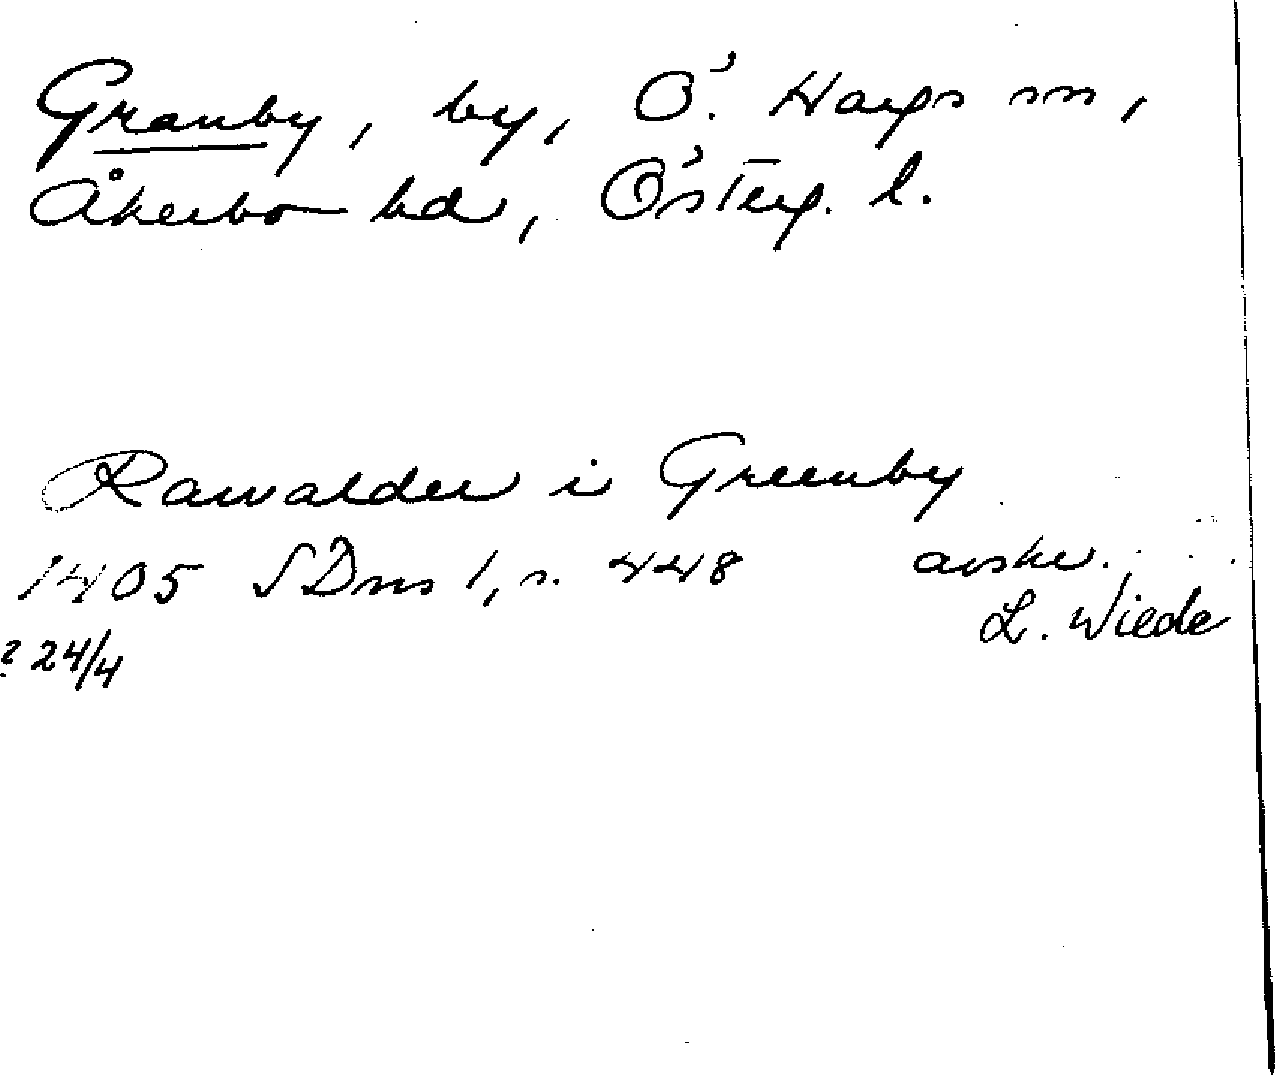 Granby, by, Ö. Hargs sn,
Åkerbo hd, Österg. l.
Rawalder i Greenby
1405 SDns 1, s. 448 avskr.
L. Wiede
? 24/4